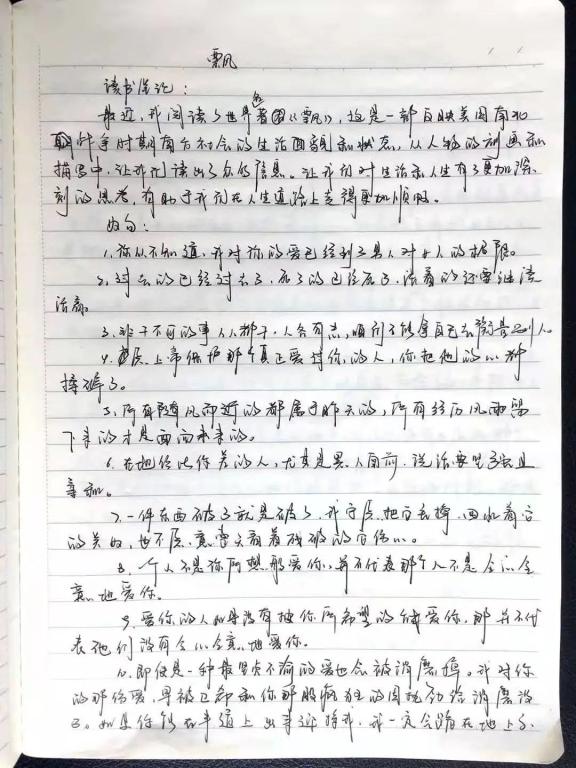 飘
读书笔记：
最近，我阅读了世界名著《飘》，这是一部反映美国南北
战争时期南方社会的生活面貌和状态，从人物的刻画和
描写中，让我们读出了众多信息。让我们对生活和人生有了更加深
刻的思考，有助于我们在人生道路上走得更加顺风。
好句：
1.你从不知道，我对你的爱已经到了男人对女人的极限。
2.过去的已经过去了，死了的已经死了，活着的还要继续
活着。
3.非干不可的事人人都干，人各有志，顺
4.上帝保护那个真正爱过你的人，你把他的心都
揉碎了。
5.所有随风而逝的都属于昨天的，所有经历风雨留
下来的才是面向未来的。
6.在地位比你差的人，尤其是黑人面前，说话要坚强且
柔和。
7.一件东西破了就是破了，我宁愿把它丢掉，回忆着它
的美好，也不愿意
8.个人不是你所想那爱你，并不代表那个人不是全心全
意地爱你。
9.爱你的人如果没有按你所希望的
爱你，那并不代
表他们没有全心全意地爱你。
10.即使是一种最坚贞不渝的爱也会被消磨掉。我对你
的那份爱，早被
和你那股疯狂的固执劲给消磨没
了。如果你能在半道上出来迎接我，我一定会跪在地上